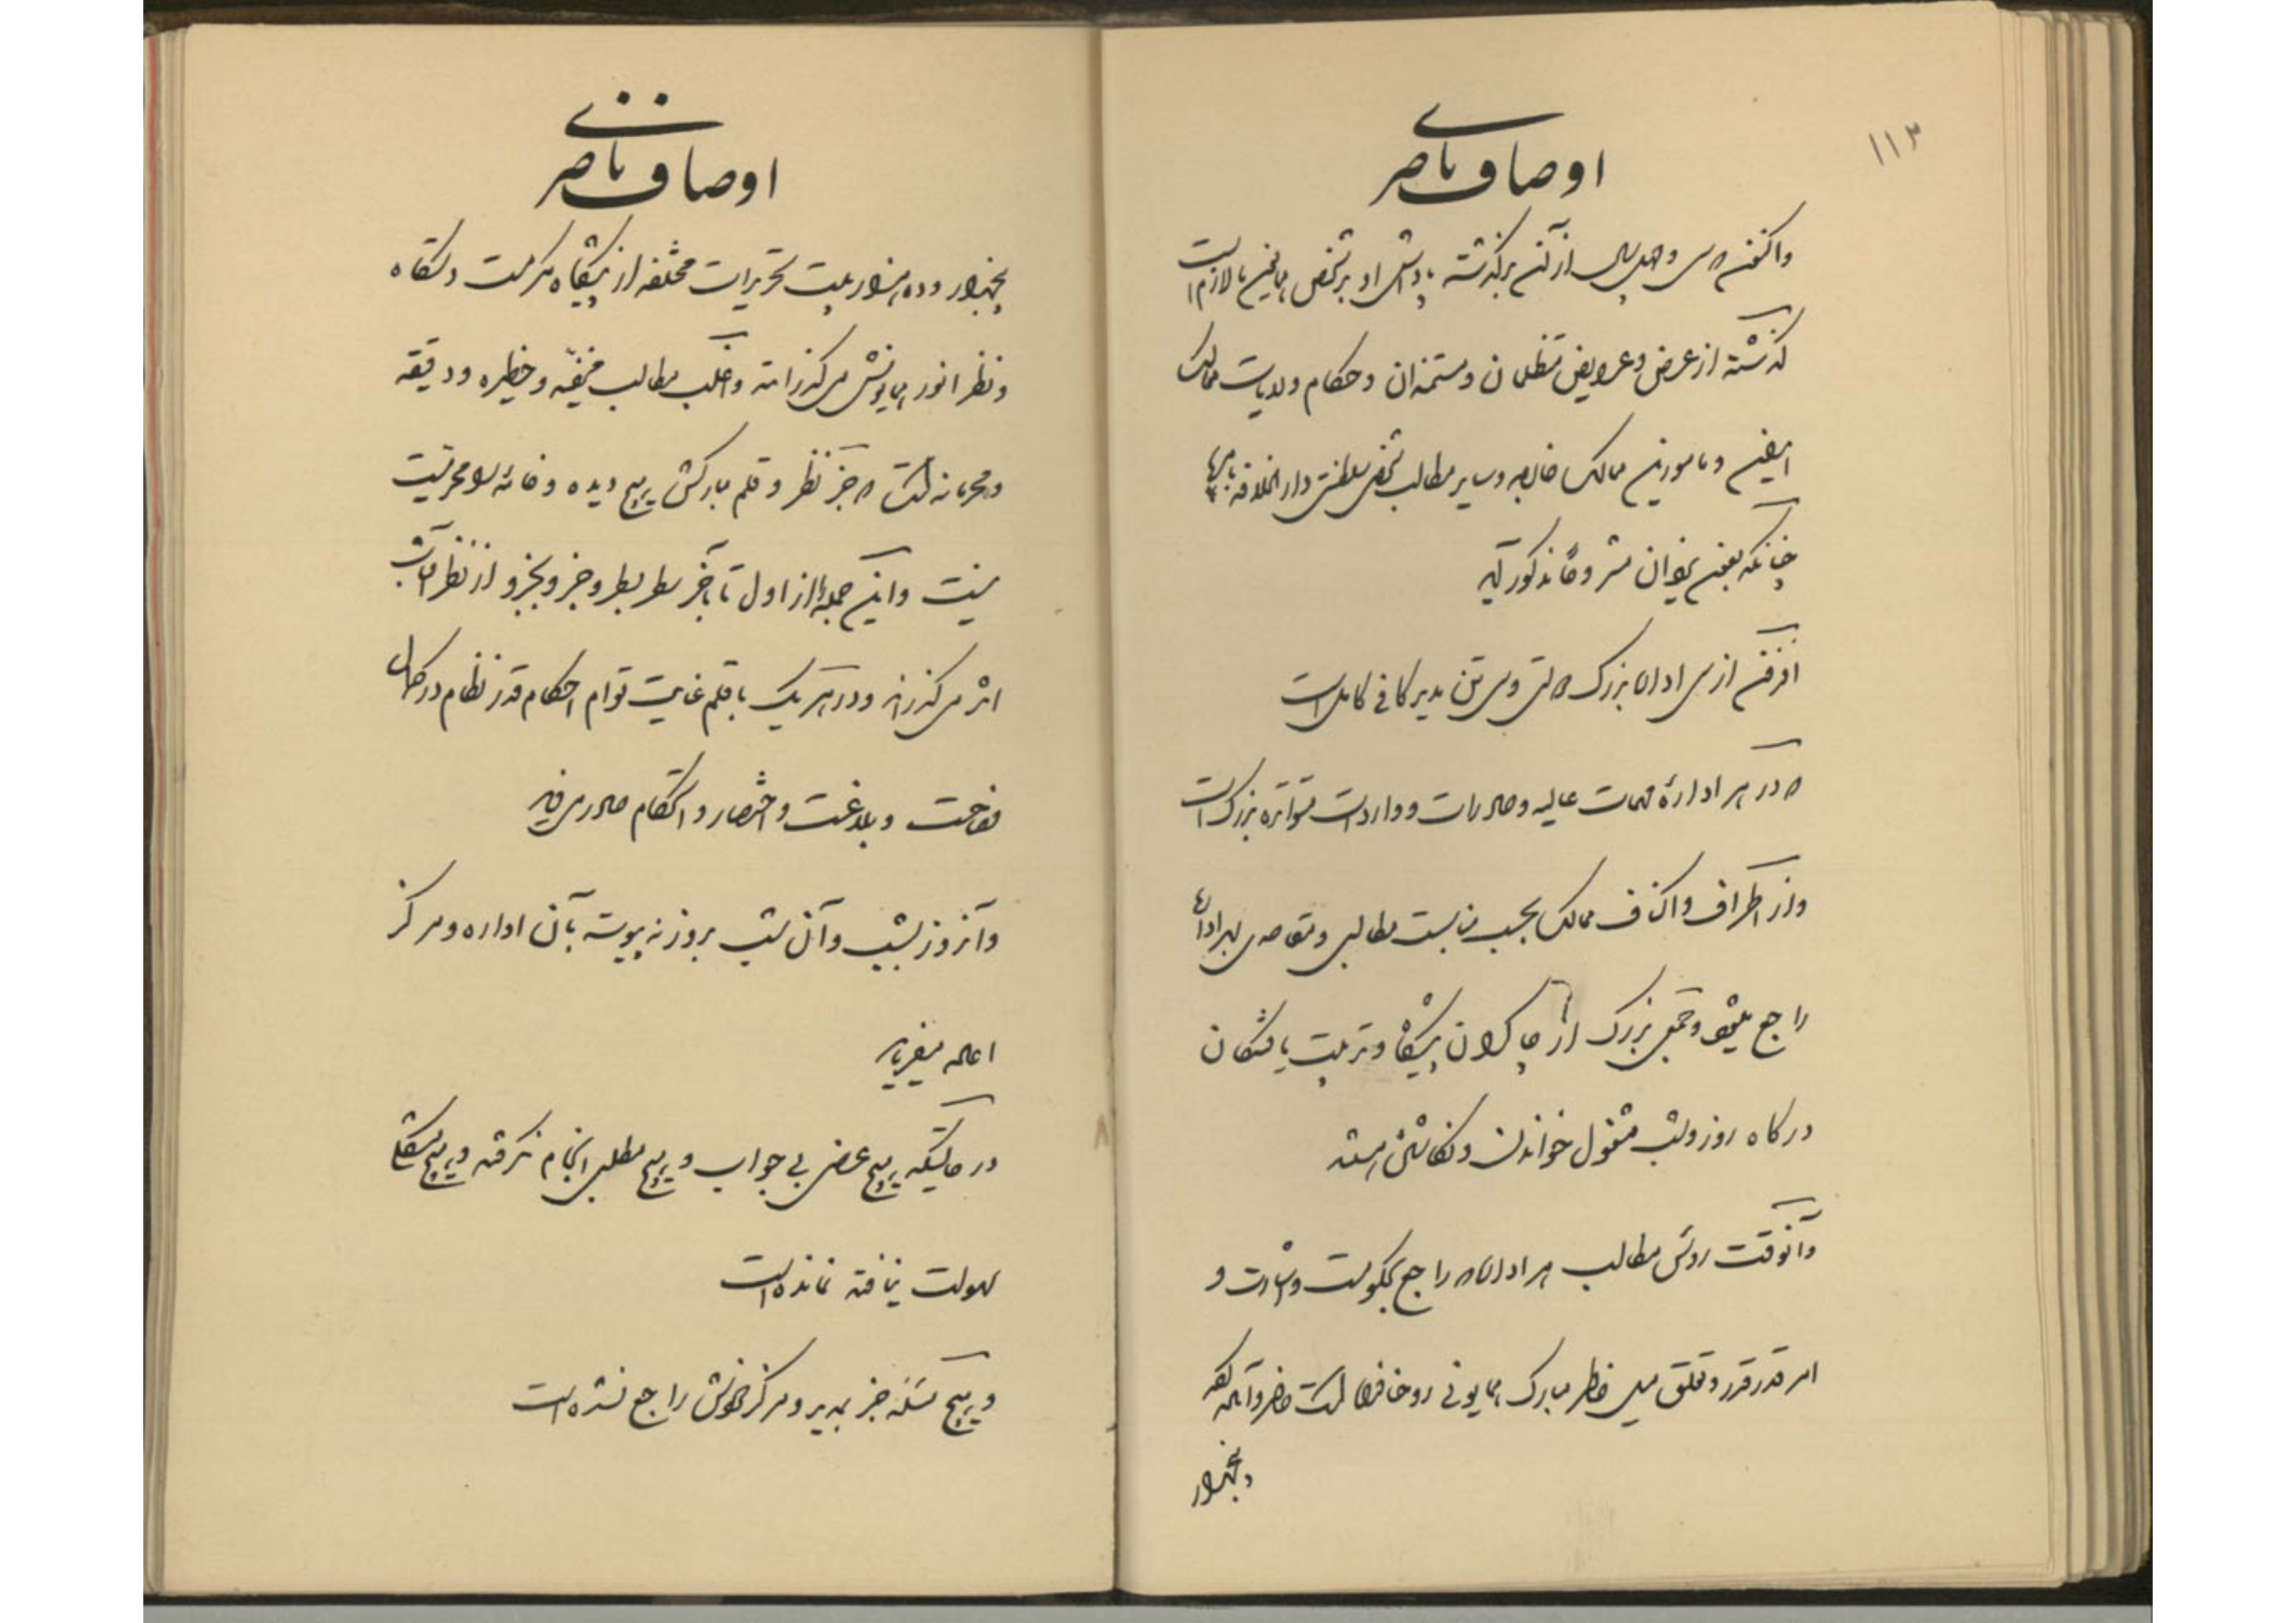 ۱۱۳
اوصاف ناصری
واکنون که سی و چهار سال از آن برگذشته پادشاهی او بر شخص همایون بالازم است
گذشته از عرض و عرایض متظلمان و مستمندان و حکام ولایات ممالک
ایلخین و مامورین ممالک خارجه و سایر مطالب شخص سلطنتی دار الخلافه
چنانکه بعضی بعنوان مشروحاً مذکور آید
افزون از سی اداره بزرگ دولتی و سی تن مدیر کافی کامل است
که در هر اداره مهمات عالیه و صادرات و واردات متواتره بزرگ است
و از اطراف و اکناف ممالک بحسب مناسبت مطالبی و مقاصدی بهر اداره
راجع میشود و جمعی بزرگ از چاکران پیشگاه و تربیت یافتگان
درگاه روز و شب مشغول خواندن و نگاشتن هستند
و آنوقت رؤس مطالب هر اداره که راجع بحکومت وزارت و
امر قدر قدر و تعلق میل خاطر مبارک همایونی روحنا فداه است حاضر و آماده
و پنجهزار
اوصاف ناصری
پنجهزار و ده هزار بیت تحریرات مختلفه از پیشگاه مرحمت دستگاه
و نظر انور همایونش می گذرانند و اغلب مطالب خفیه و خطیره و دقیقه
و محرمانه است که جز نظر و قلم مبارکش هیچ دیده و خامه را محرمیت
نیست و این جمله را از اول تا بآخر سطر بسطر و جزو بجزو از نظر آفتاب
اثر می گذراند و در هر یک با قلم عنایت توام احکام قدر نظام در کمال
فصاحت و بلاغت و اختصار و استحکام صادر میفرماید
و آنروز بشب و آن شب بروز نه پیوسته بآن اداره و مرکز
اعاده میفرمایند
در حالتیکه هیچ عرض بی جواب و هیچ مطلبی انجام نگرفته و هیچ مشکلی
سهولت نیافته نمانده است
و هیچ مسئله جز بمدیر و مرکز خودش راجع نشده است